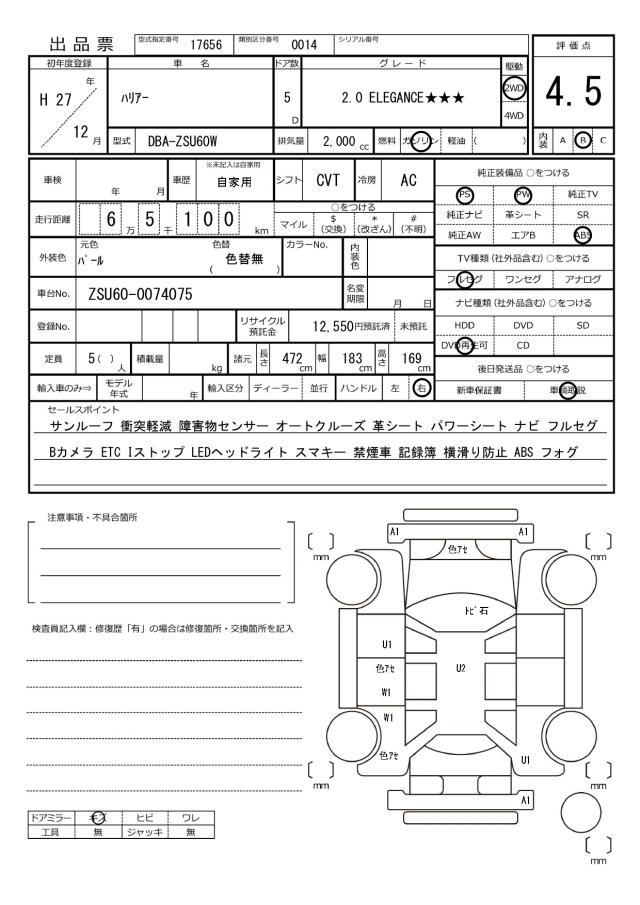 出品票 型式指定番号 17656 類別区分番号 0014 シリアル番号
評価点
4.5
初年度登録 車名 ドア数 グレード 駆動
H 27 年 ハリアー 5 D 2.0 ELEGANCE★★★ 2WD
4WD
12 月 型式 DBA-ZSU60W 排気量 2,000 cc 燃料 ガソリン 軽油 ( ) 内装 A B C
車検 年 月 車歴 ※未記入は自家用 自家用 シフト CVT 冷房 AC
純正装備品 ○をつける
PS PW 純正TV
純正ナビ 革シート SR
純正AW エアB ABS
走行距離 6 万 5 千 1 0 0 km ○をつける
マイル $ (交換) * (改ざん) # (不明)
外装色 元色 パール 色替 ( 色替無 ) カラーNo. 内装色
TV種類 (社外品含む) ○をつける
フルセグ ワンセグ アナログ
車台No. ZSU60-0074075 名変期限 月 日
ナビ種類 (社外品含む) ○をつける
HDD DVD SD
DVD再生可 CD
登録No. リサイクル預託金 12,550円預託済 未預託
定員 5( ) 人 積載量 kg 諸元 長さ 472 cm 幅 183 cm 高さ 169 cm
後日発送品 ○をつける
新車保証書 車輌取説
輸入車のみ⇒ モデル年式 年 輸入区分 ディーラー 並行 ハンドル 左 右
セールスポイント
サンルーフ 衝突軽減 障害物センサー オートクルーズ 革シート パワーシート ナビ フルセグ
Bカメラ ETC Iストップ LEDヘッドライト スマキー 禁煙車 記録簿 横滑り防止 ABS フォグ
注意事項・不具合箇所
検査員記入欄：修復歴「有」の場合は修復箇所・交換箇所を記入
A1 A1
色アセ
mm mm
トビ石
U1
色アセ U2
W1
W1
色アセ U1
mm mm
A1
mm
ドアミラー キズ ヒビ ワレ
工具 無 ジャッキ 無